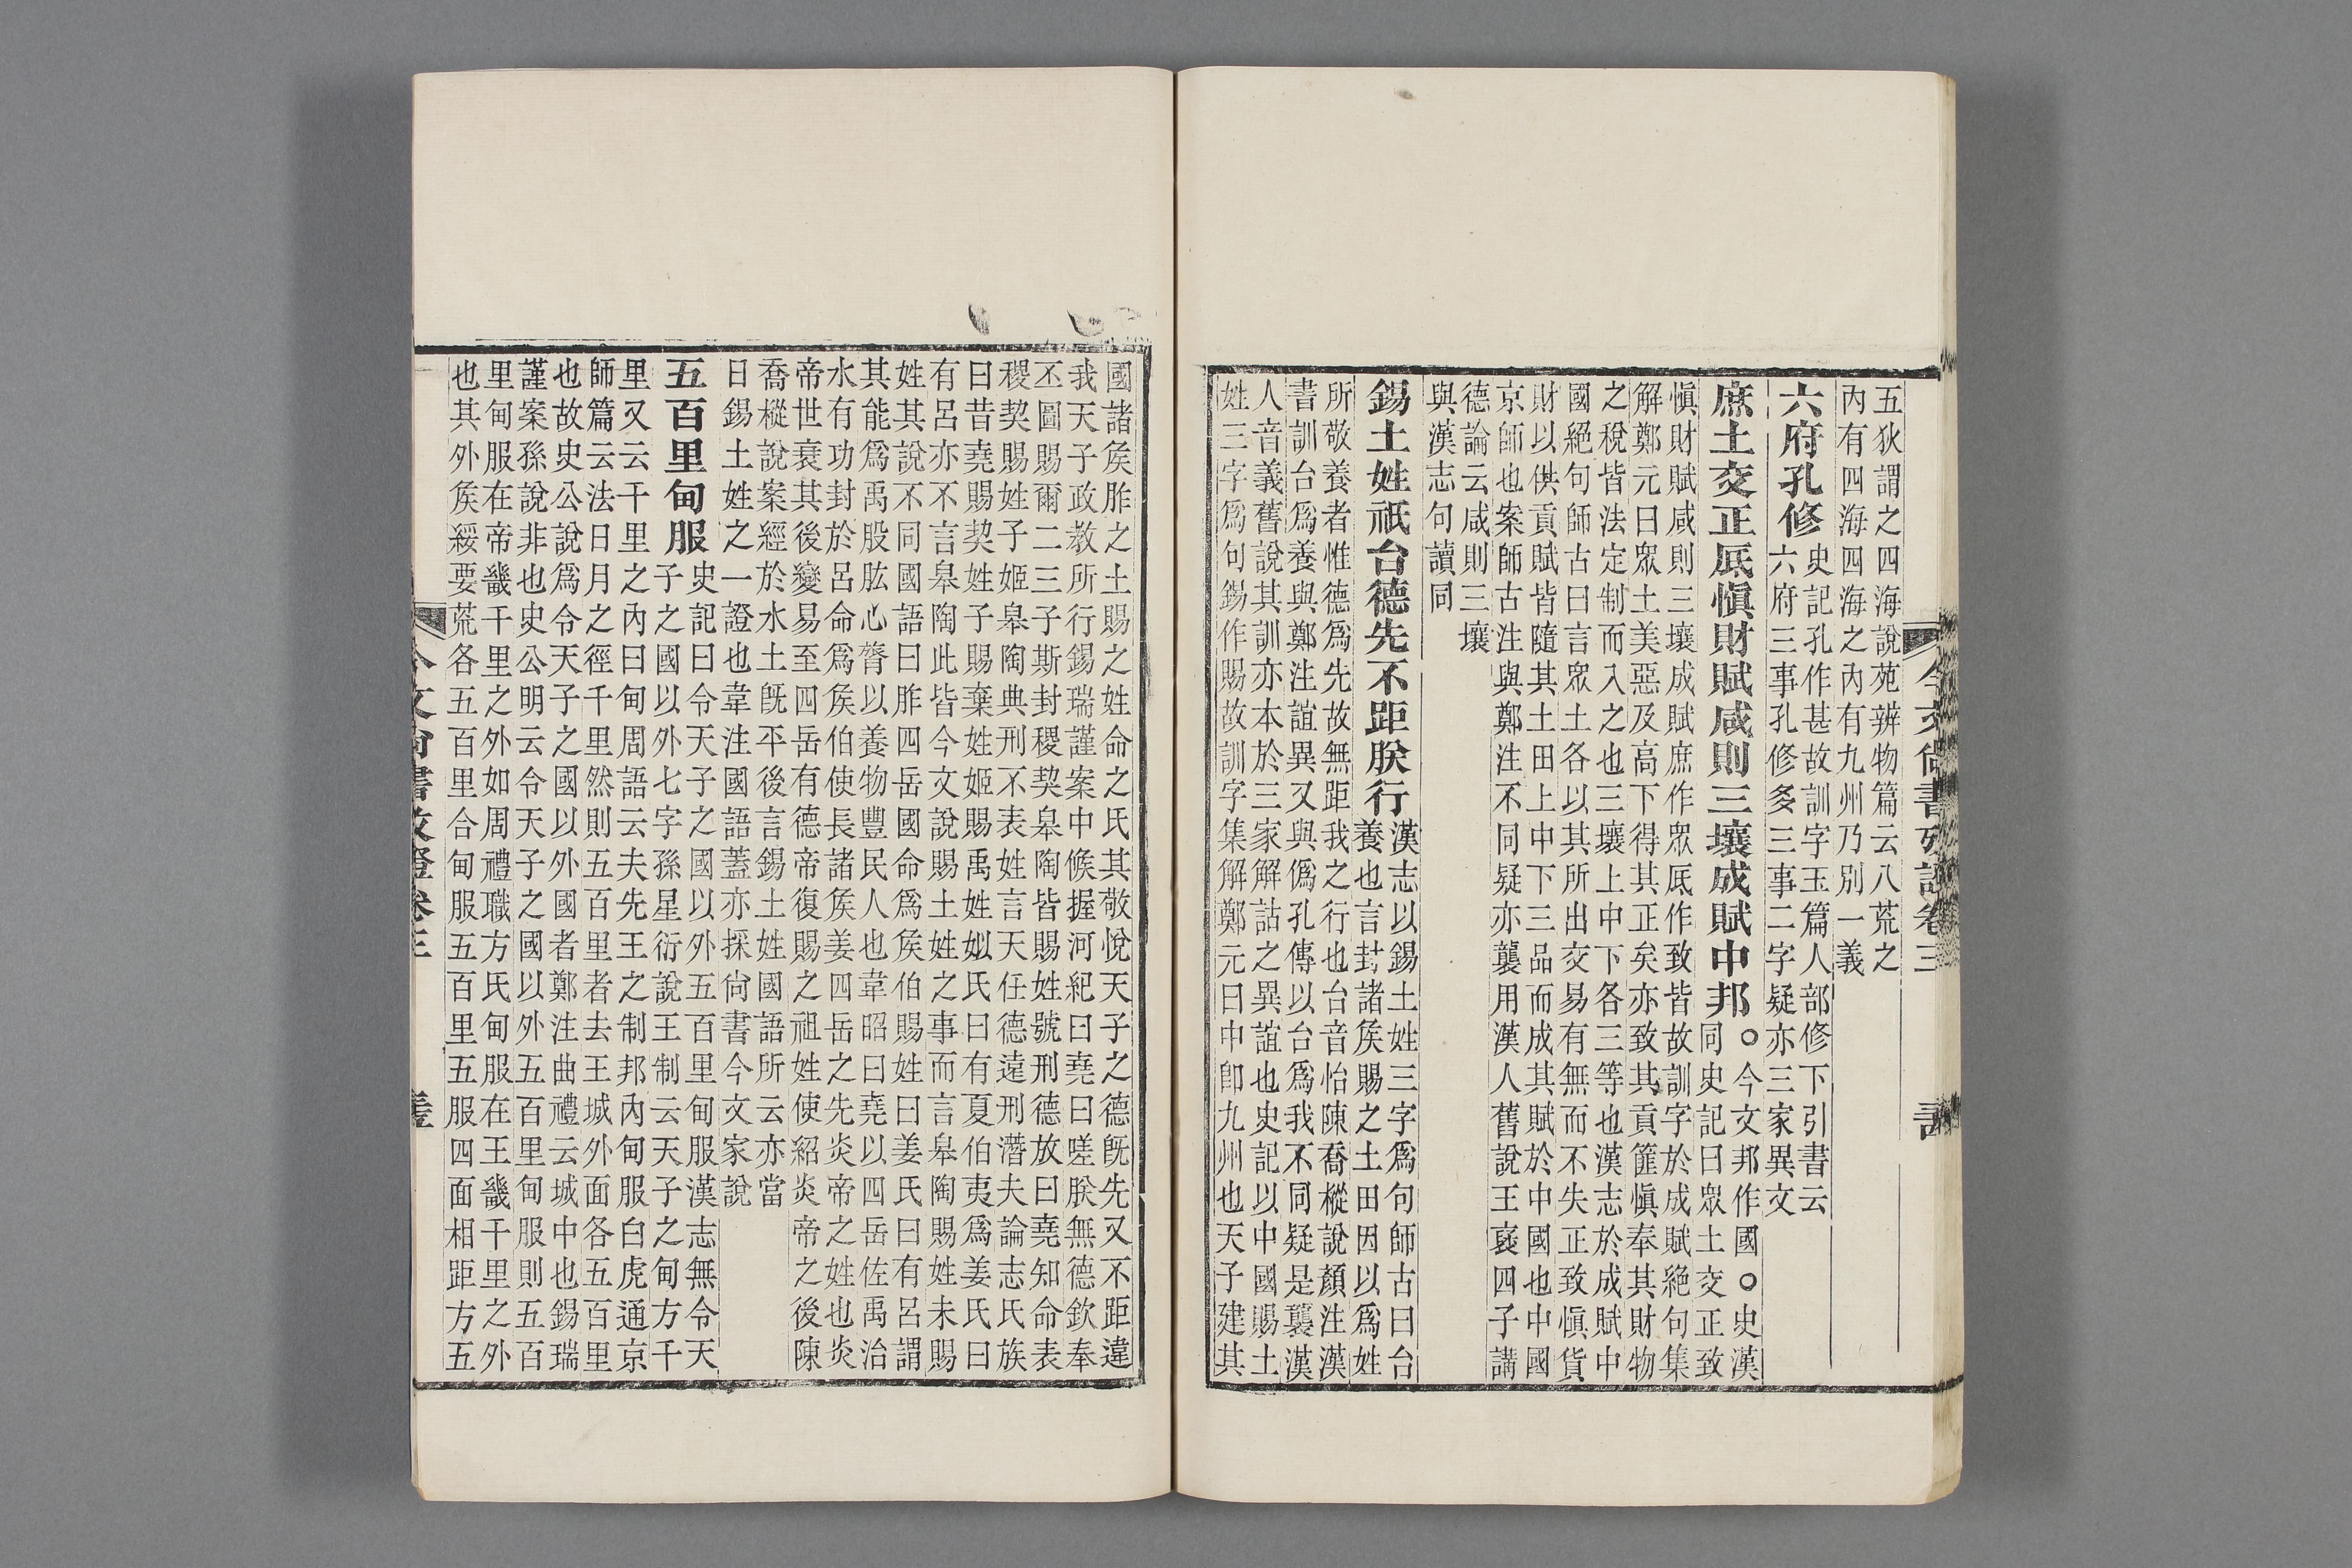 五狄謂之四海說苑辨物篇云八荒之
內有四海四海之內有九州乃別一義
六府孔修
史記孔作甚故訓字玉篇人部修下引書云
六府三事孔修多三事二字疑亦三家異文
庶土交正厎愼財賦咸則三壤成賦中邦
○今文邦作國○史漢
同史記曰眾土交正致
愼財賦咸則三壤成賦庶作眾厎作致皆故訓字於成賦絕句集
解鄭元曰眾土美惡及高下得其正矣亦致其貢篚愼奉其財物
之稅皆法定制而入之也三壤上中下各三等也漢志於成賦中
國絕句師古曰言眾土各以其所出交易有無而不失正致愼貨
財以供貢賦皆隨其土田上中下三品而成其賦於中國也中國
京師也案師古注與鄭注不同疑亦襲用漢人舊說王襃四子講
德論云咸則三壤
與漢志句讀同
錫土姓祇台德先不距朕行
漢志以錫土姓三字爲句師古曰台
養也言封諸矦賜之土田因以爲姓
所敬養者惟德爲先故無距我之行也台音怡陳喬樅說顏注漢
書訓台爲養與鄭注誼異又與僞孔傳以台爲我不同疑是襲漢
人音義舊說其訓亦本於三家解詁之異誼也史記以中國賜土
姓三字爲句錫作賜故訓字集解鄭元曰中卽九州也天子建其
今文尚書攷證卷三
國諸矦胙之土賜之姓命之氏其敬悅天子之德旣先又不距違
我天子政敎所行錫瑞謹案中候握河紀曰堯曰嗟朕無德欽奉
丕圖賜爾二三子斯封稷契皋陶皆賜姓號刑德放曰堯知命表
稷契賜姓子姬皋陶典刑不表姓言天任德遠刑潛夫論志氏族
曰昔堯賜契姓子賜棄姓姬賜禹姓姒氏曰有夏伯夷爲姜氏曰
有呂亦不言皋陶此皆今文說賜土姓之事而言皋陶賜姓未賜
姓其說不同國語曰胙四岳國命爲矦伯賜姓曰姜氏曰有呂謂
其能爲禹股肱心膂以養物豐民人也韋昭曰堯以四岳佐禹治
水有功封於呂命爲矦伯使長諸矦姜四岳之先炎帝之姓也炎
帝世衰其後變易至四岳有德帝復賜之祖姓使紹炎帝之後陳
喬樅說案經於水土旣平後言錫土姓國語所云亦當
日錫土姓之一證也韋注國語蓋亦採尙書今文家說
五百里甸服
史記曰令天子之國以外五百里甸服漢志無令天
子之國以外七字孫星衍說王制云天子之甸方千
里又云千里之內曰甸周語云夫先王之制邦內甸服白虎通京
師篇云法日月之徑千里然則五百里者去王城外面各五百里
也故史公說爲令天子之國以外國者鄭注曲禮云城中也錫瑞
謹案孫說非也史公明云令天子之國以外五百里甸服則五百
里甸服在帝畿千里之外如周禮職方氏甸服在王畿千里之外
也其外矦綏要荒各五百里合甸服五百里五服四面相距方五
今文尚書攷證卷三